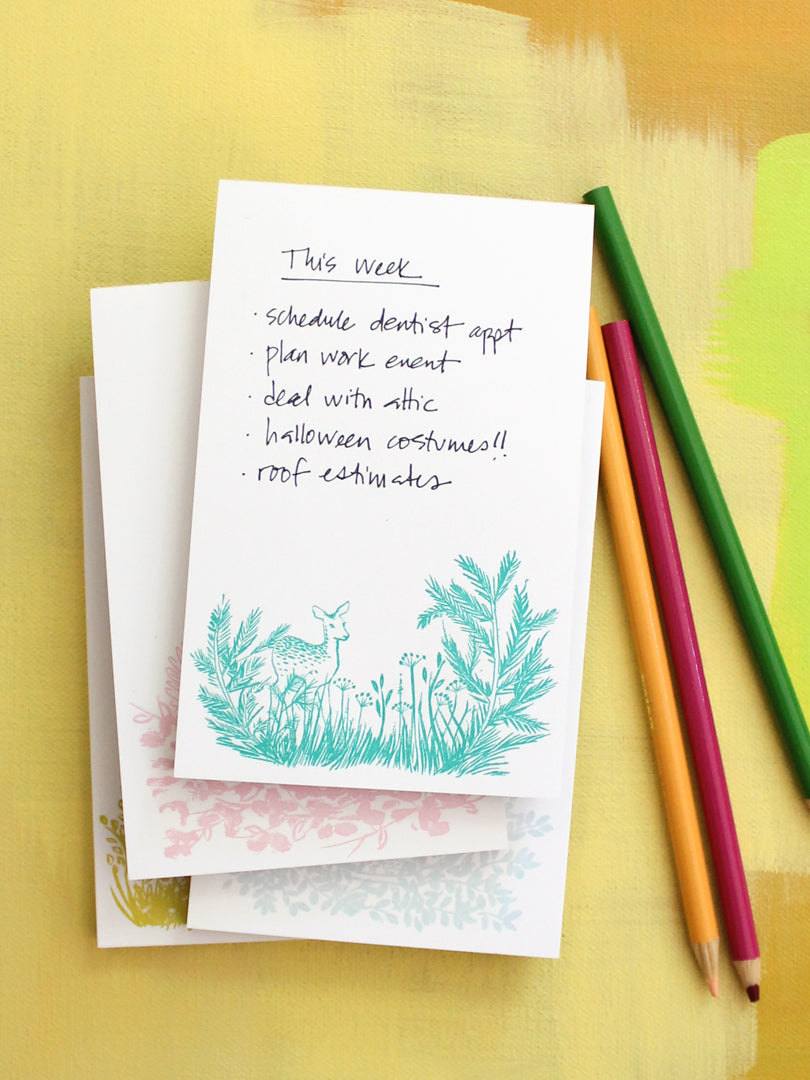 This week
· schedule dentist appt
· plan work event
· deal with attic
· halloween costumes!!
· roof estimates